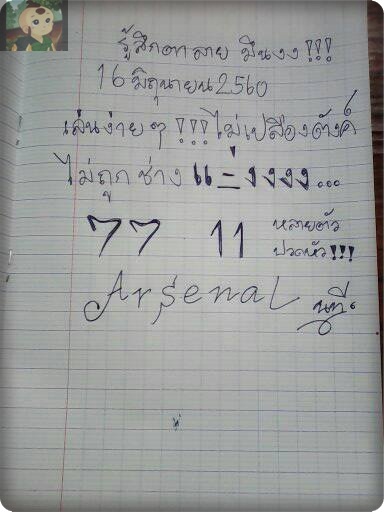 รู้สึกตาลาย มึนงง!!!
16 มิถุนายน 2560
เล่นง่ายๆ !!! ไม่เปลืองตังค์
ไม่ถูก ช่าง แ = งงงง...
77 11 หลายตัว
ปวดหัว!!!
Arsenal